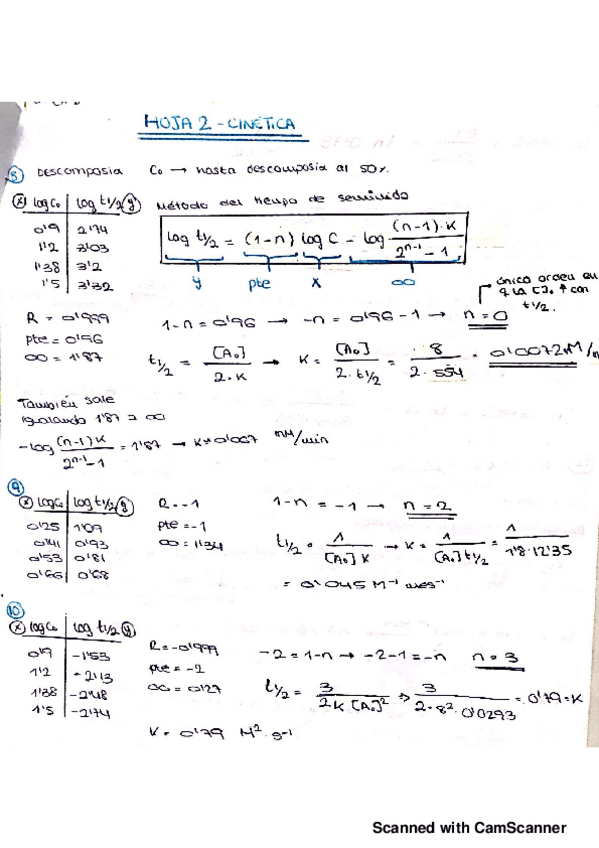 HOJA 2 - CINÉTICA
8 DESCOMPOSIA C₀ → hasta descomposia al 50%.
(x) log C₀ | log t1/2 (y) Método del tiempo de semivida
0'9 | 2'74
1'2 | 3'03
1'38 | 3'2
1'5 | 3'32
log t1/2 = (1-n) log C - log (n-1)·K / 2ⁿ⁻¹ - 1
y pte x oo
único orden en q la [ ]₀ ↑ con t1/2.
R = 0'999
pte = 0'96
oo = 1'87
1-n = 0'96 → -n = 0'96 - 1 → n = 0
t1/2 = [A₀] / 2·K → K = [A₀] / 2·t1/2 = 8 / 2·554 = 0'0072 M/m
También sale
igualando 1'87 a oo
-log (n-1)K / 2ⁿ⁻¹-1 = 1'87 → K = 0'007 mM/min
9
(x) log C₀ | log t1/2 (y)
0'25 | 1'09
0'41 | 0'93
0'53 | 0'81
0'66 | 0'68
R = -1
pte = -1
oo = 1'34
1-n = -1 → n = 2
t1/2 = 1 / [A₀] K → K = 1 / [A₀] t1/2 = 1 / 1'8·12'35
= 0'045 M⁻¹ mes⁻¹
10
(x) log C₀ | log t1/2 (y)
0'9 | -1'53
1'2 | -2'13
1'38 | -2'48
1'5 | -2'74
R = -0'999
pte = -2
oo = 0'27
-2 = 1-n → -2-1 = -n n = 3
t1/2 = 3 / 2K [A₀]² ⇒ 3 / 2·8²·0'0293 = 0'79 = K
K = 0'79 M²·s⁻¹
Scanned with CamScanner